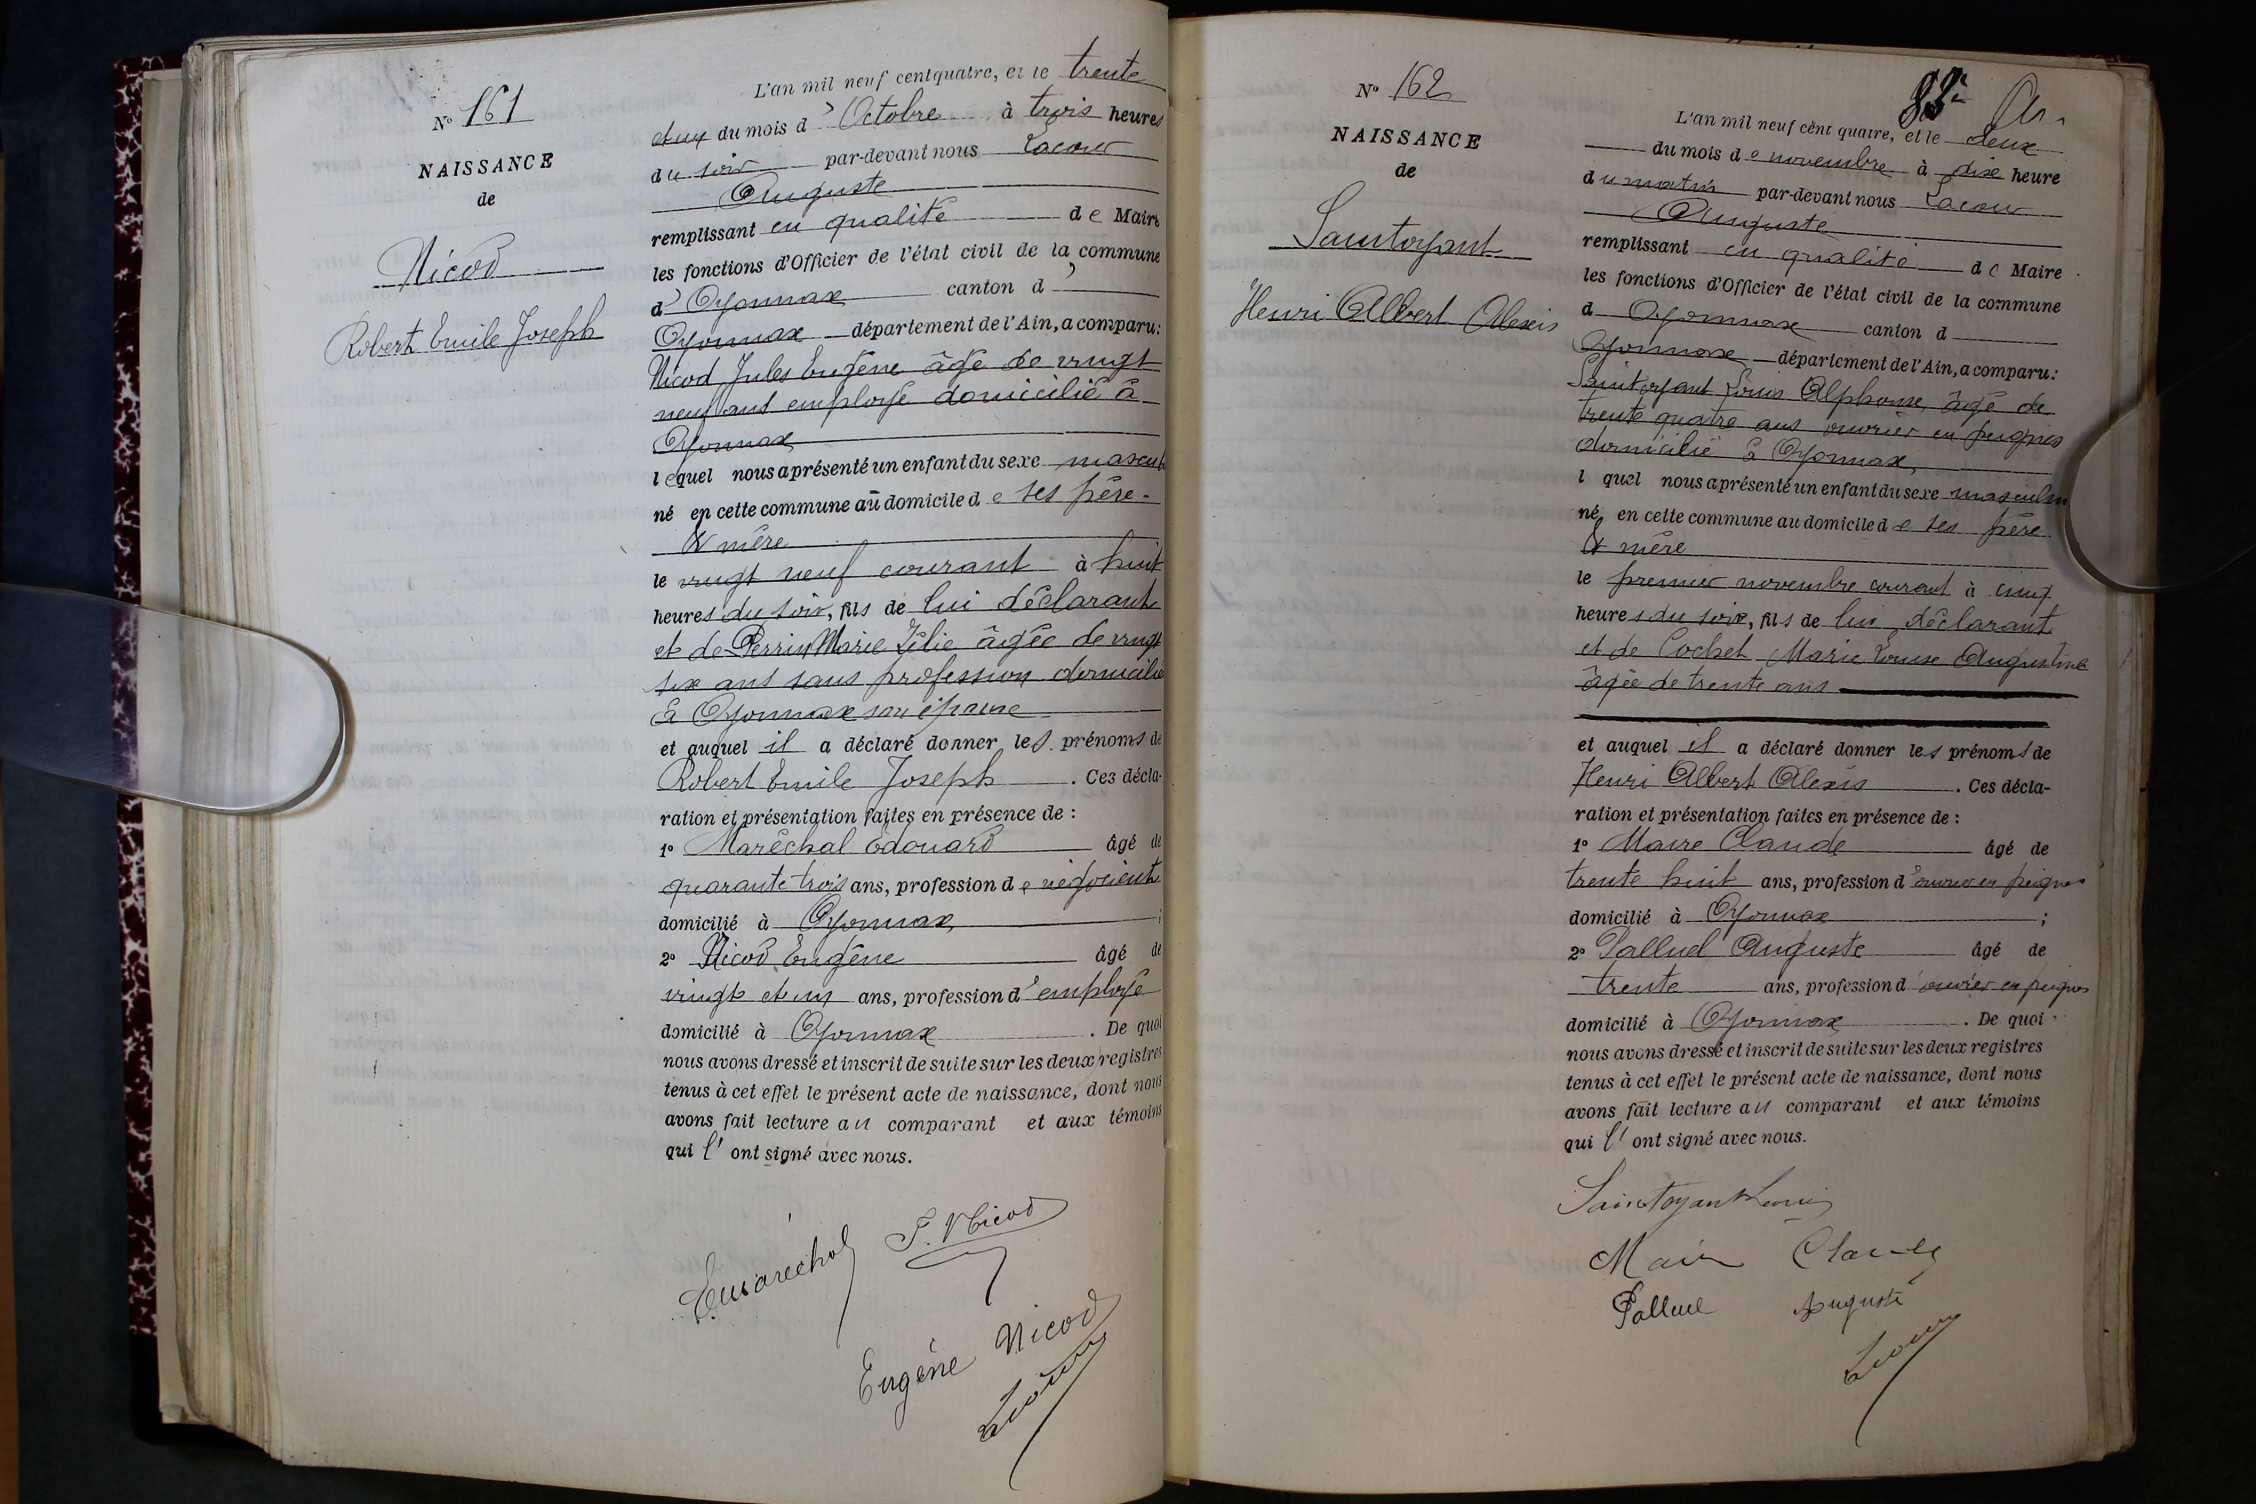 N° 161
NAISSANCE
de
Nicod
Robert Emile Joseph
L'an mil neuf cent quatre, et le trente
du mois d'Octobre à trois heures
du soir par-devant nous Lacour
Auguste
remplissant en qualité de Maire
les fonctions d'Officier de l'état civil de la commune
d'Oyonnax canton d'
Oyonnax département de l'Ain, a comparu:
Nicod Jules Eugène âgé de vingt
neuf ans employé domicilié à
Oyonnax
lequel nous a présenté un enfant du sexe mascul
né en cette commune au domicile de ses père
& mère
le vingt neuf courant à huit
heures du soir, fils de lui déclarant
et de Perrin Marie Zélie âgée de vingt
six ans sans profession domicilié
à Oyonnax son épouse
et auquel il a déclaré donner les prénoms de
Robert Emile Joseph . Ces décla-
ration et présentation faites en présence de :
1° Maréchal Edouard âgé de
quarante trois ans, profession de négociant
domicilié à Oyonnax ;
2° Nicod Eugène âgé de
vingt et un ans, profession d'employé
domicilié à Oyonnax . De quoi
nous avons dressé et inscrit de suite sur les deux registres
tenus à cet effet le présent acte de naissance, dont nous
avons fait lecture au comparant et aux témoins
qui l'ont signé avec nous.
Emaréchal J. Nicod
Eugène Nicod
Lacour
83e
N° 162
NAISSANCE
de
Saintoyant
Henri Albert Alexis
L'an mil neuf cent quatre, et le deux
du mois de novembre à dix heure
du matin par-devant nous Lacour
Auguste
remplissant en qualité de Maire
les fonctions d'Officier de l'état civil de la commune
d Oyonnax canton d
Oyonnax département de l'Ain, a comparu:
Saintoyant Louis Alphonse, âgé de
trente quatre ans ouvrier en peignes
domicilié à Oyonnax,
l quel nous a présenté un enfant du sexe masculin
né en cette commune au domicile de ses père
& mère
le premier novembre courant à cinq
heures du soir, fils de lui déclarant
et de Cochet Marie Louise Augustine
âgée de trente ans
et auquel il a déclaré donner les prénoms de
Henri Albert Alexis . Ces décla-
ration et présentation faites en présence de :
1° Maire Claude âgé de
trente huit ans, profession d'ouvrier en peignes
domicilié à Oyonnax ;
2° Palluel Auguste âgé de
trente ans, profession d'ouvrier en peignes
domicilié à Oyonnax . De quoi
nous avons dressé et inscrit de suite sur les deux registres
tenus à cet effet le présent acte de naissance, dont nous
avons fait lecture au comparant et aux témoins
qui l'ont signé avec nous.
Saintoyant Louis
Maire Claude
Palluel Auguste
Lacour